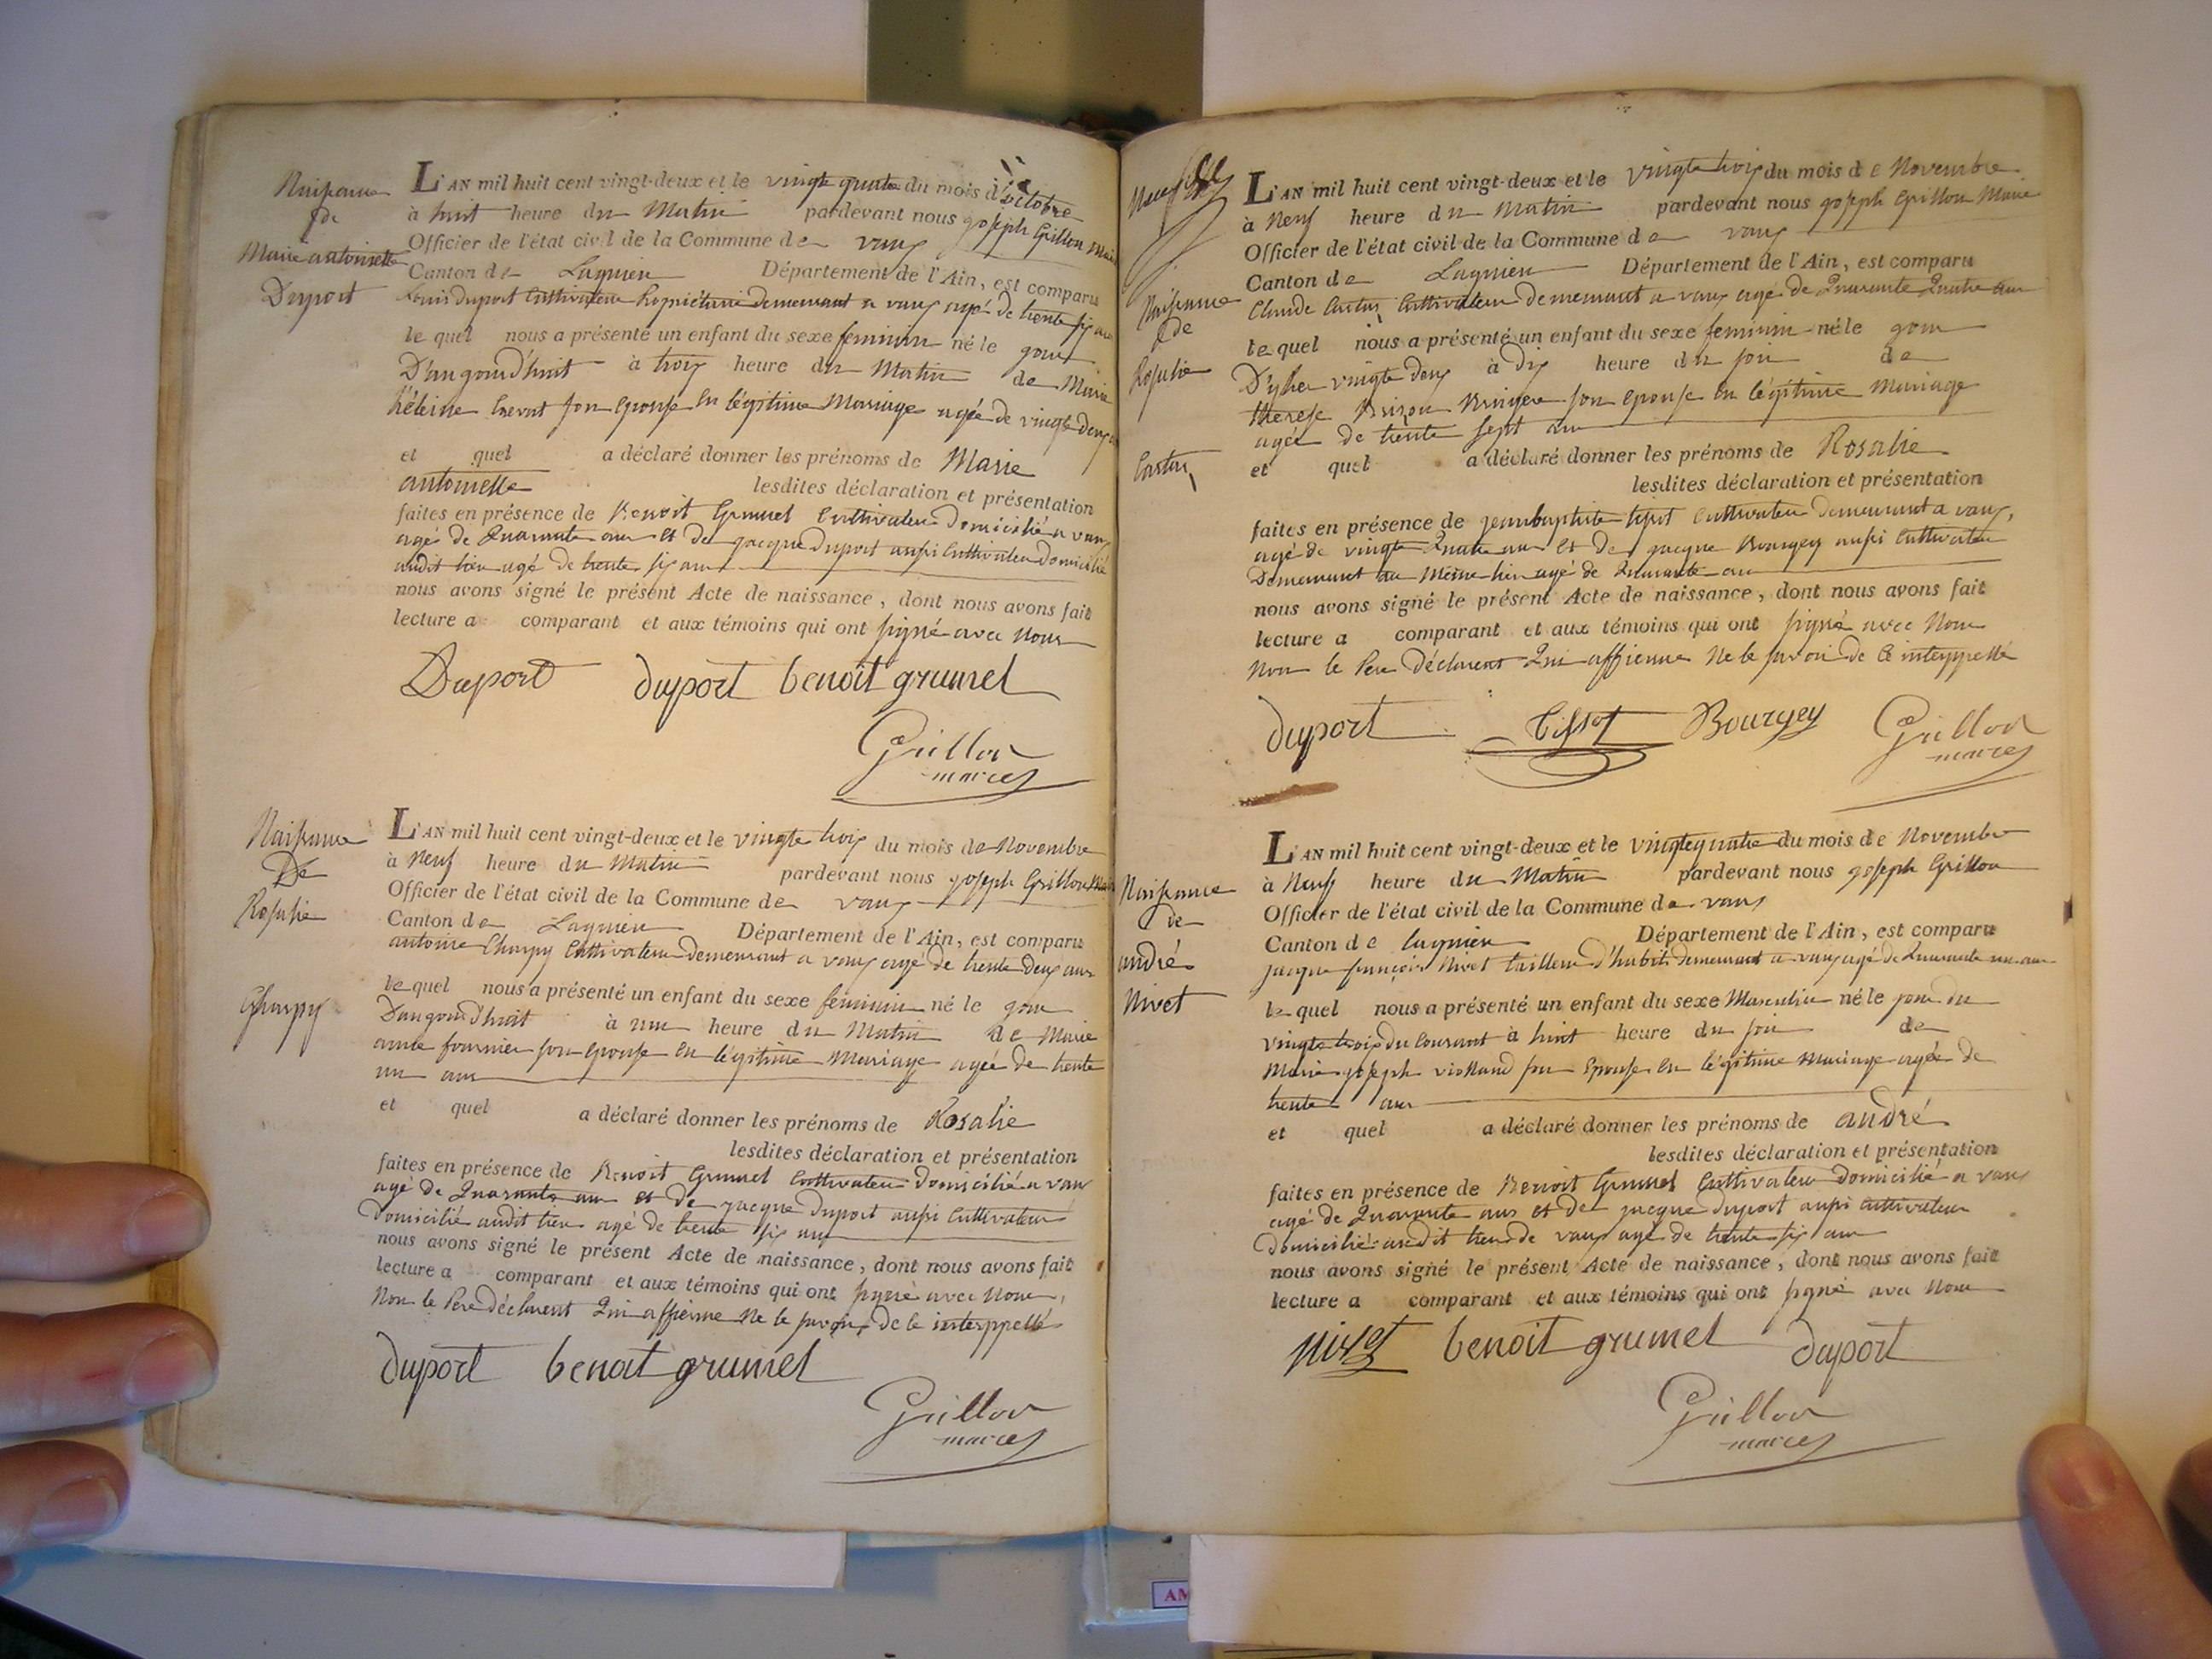 Naissance
de
Marie antoinette
Duport
L'AN mil huit cent vingt-deux et le vingt quatre du mois d'octobre
à huit heure du Matin pardevant nous joseph Grillon Maire
Officier de l'état civil de la Commune de vaux
Canton de Lagnieu Département de l'Ain, est comparu
Louis duport Cultivateur Propriétaire demeurant a vaux agé de trente six ans
le quel nous a présenté un enfant du sexe feminin né le jour
D'aujourd'huit à trois heure du Matin de Marie
héleine son epouse en légitime Mariage agée de vingt deux
et quel a déclaré donner les prénoms de Marie
antoinette lesdites déclaration et présentation
faites en présence de Benoit Grumel Cultivateur domicilié a vaux
agé de Quarante ans et de jacque duport aussi Cultivateur domicilié
audit lieu agé de trente six ans
nous avons signé le présent Acte de naissance, dont nous avons fait
lecture a comparant et aux témoins qui ont signé avec Nous
Duport duport benoit grumel
Grillon
maire
Naissance
De
Rosalie
Charpy
L'AN mil huit cent vingt-deux et le vingte trois du mois de Novembre
à Neuf heure du Matin pardevant nous joseph Grillon Maire
Officier de l'état civil de la Commune de vaux
Canton de Lagnieu Département de l'Ain, est comparu
antoine Charpy Cultivateur demeurant a vaux agé de trente deux ans
le quel nous a présenté un enfant du sexe feminin né le jour
D'aujourd'huit à une heure du Matin de Marie
anne fournier son epouse en légitime Mariage agée de trente
un ans
et quel a déclaré donner les prénoms de Rosalie
lesdites déclaration et présentation
faites en présence de Benoit Grumel Cultivateur domicilié a vaux
agé de Quarante ans et de jacque duport aussi Cultivateur
domicilié audit lieu agé de trente six ans
nous avons signé le présent Acte de naissance, dont nous avons fait
lecture a comparant et aux témoins qui ont signé avec Nous,
Non le Pere déclarent Qui affierme Ne le savoir de ce interppellé
duport benoit grumel
Grillon
maire
Naissance
de
Rosalie
L'AN mil huit cent vingt-deux et le vingte trois du mois de Novembre
à Neuf heure du Matin pardevant nous joseph Grillon Maire
Officier de l'état civil de la Commune de vaux
Canton de Lagnieu Département de l'Ain, est comparu
Claude Cultivateur demeurant a vaux agé de Quarante Quatre ans
le quel nous a présenté un enfant du sexe feminin né le jour
D'yher vingte deux à dix heure du soir de
therese son epouse en légitime Mariage
agée de trente sept ans
et quel a déclaré donner les prénoms de Rosalie
lesdites déclaration et présentation
faites en présence de jeanbaptiste tissot Cultivateur demeurant a vaux,
agé de vingte Quatre ans et de jacque Bourgey aussi Cultivateur
Demeurant au Même lieu agé de Quarante ans
nous avons signé le présent Acte de naissance, dont nous avons fait
lecture a comparant et aux témoins qui ont signé avec Nous
Non le Pere déclarent Qui affierme Ne le savoir de ce interppellé
duport Tissot Bourgey Grillon
maire
Naissance
de
andré
Nivet
L'AN mil huit cent vingt-deux et le vingtequatre du mois de Novembre
à Neuf heure du Matin pardevant nous joseph Grillon
Officier de l'état civil de la Commune de vaux
Canton de Lagnieu Département de l'Ain, est comparu
jacque françois Nivet tailleur d'habits demeurant a vaux agé de Quarante un ans
le quel nous a présenté un enfant du sexe Masculin né le jour du
vingte trois du Courant à huit heure du soir de
Marie joseph violland son Epouse en légitime Mariage agée de
trente ans
et quel a déclaré donner les prénoms de andré
lesdites déclaration et présentation
faites en présence de Benoit Grumel Cultivateur domicilié a vaux
agé de Quarante ans et de jacque duport aussi Cultivateur
domicilié audit lieu de vaux agé de trente six ans
nous avons signé le présent Acte de naissance, dont nous avons fait
lecture a comparant et aux témoins qui ont signé avec Nous
Nivet benoit grumel duport
Grillon
maire
AM